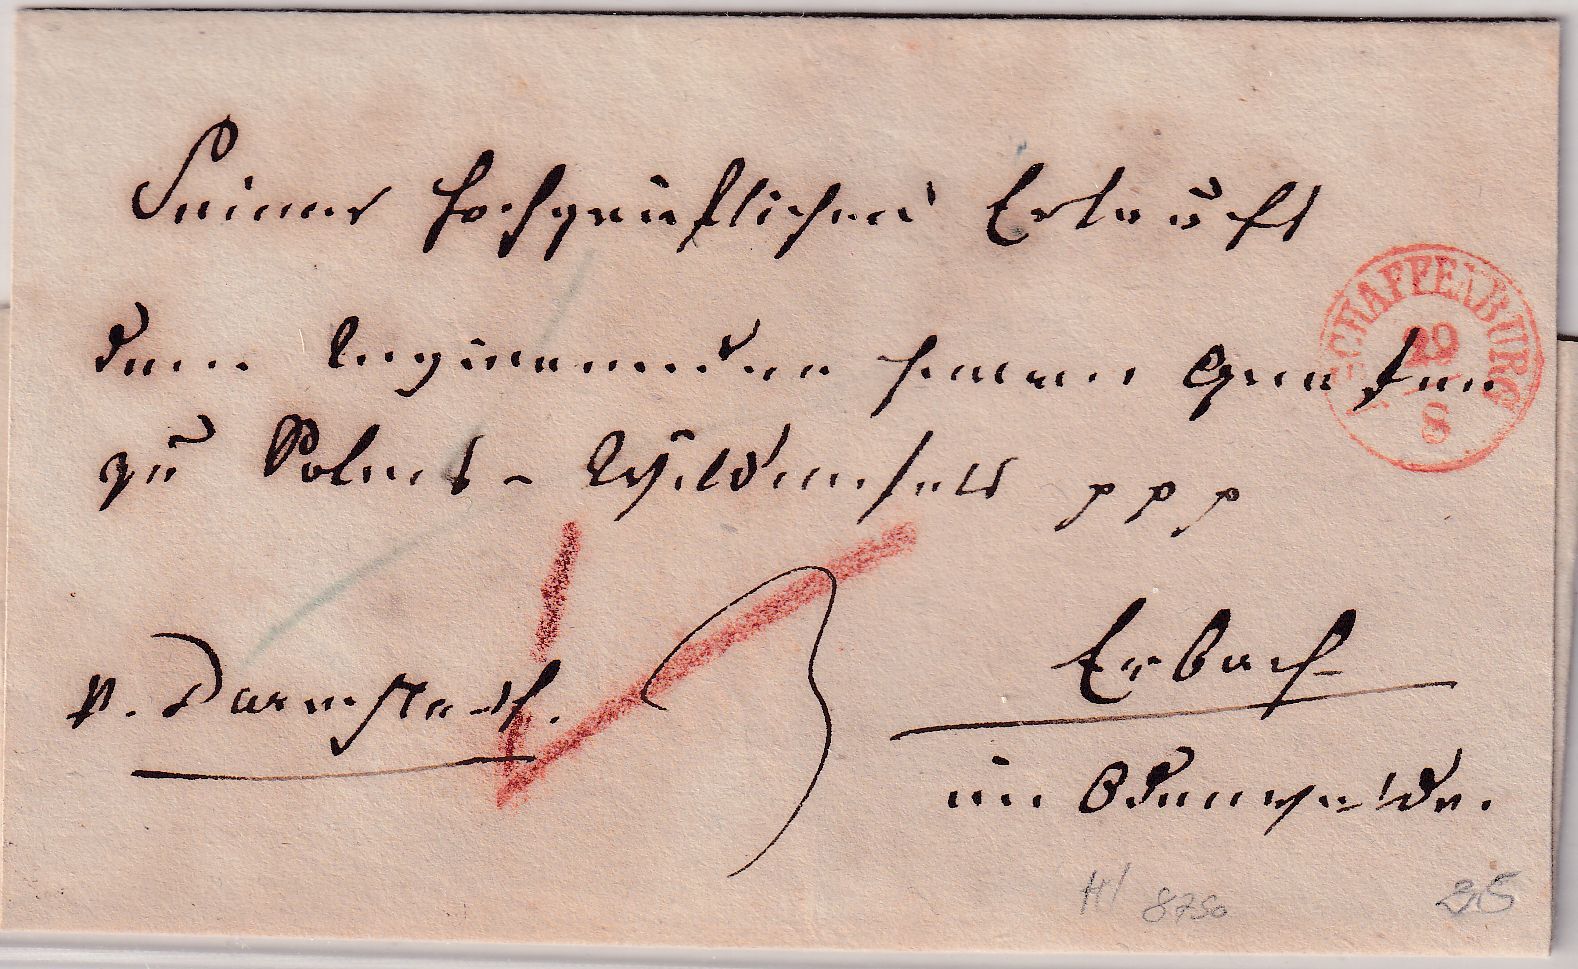 Seiner Hochgräflichen Erlaucht
dem regierenden Herrn Grafen
zu Solms - Wildenfels ppp
p. Darmstadt.
Erbach
im Odenwalde.
SCHAFFENBURG
29
8
3
H/ 8750
35